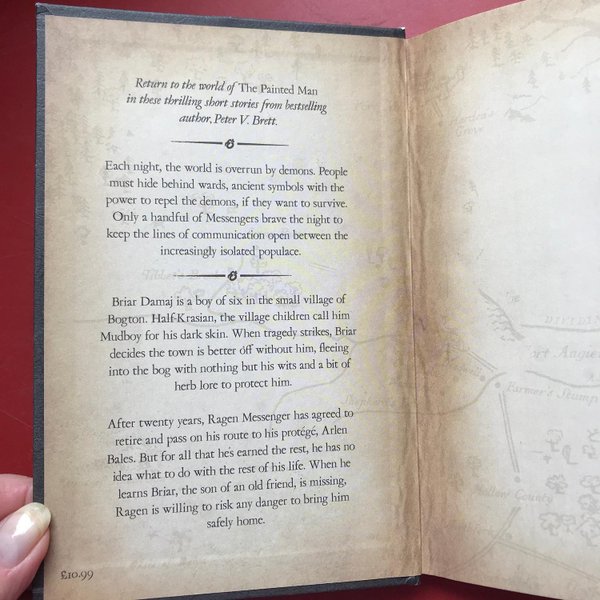 Return to the world of The Painted Man
in these thrilling short stories from bestselling
author, Peter V. Brett.
Each night, the world is overrun by demons. People
must hide behind wards, ancient symbols with the
power to repel the demons, if they want to survive.
Only a handful of Messengers brave the night to
keep the lines of communication open between the
increasingly isolated populace.
Briar Damaj is a boy of six in the small village of
Bogton. Half-Krasian, the village children call him
Mudboy for his dark skin. When tragedy strikes, Briar
decides the town is better off without him, fleeing
into the bog with nothing but his wits and a bit of
herb lore to protect him.
After twenty years, Ragen Messenger has agreed to
retire and pass on his route to his protégé, Arlen
Bales. But for all that he's earned the rest, he has no
idea what to do with the rest of his life. When he
learns Briar, the son of an old friend, is missing,
Ragen is willing to risk any danger to bring him
safely home.
£10.99
Grove
Farmer's Stump
County